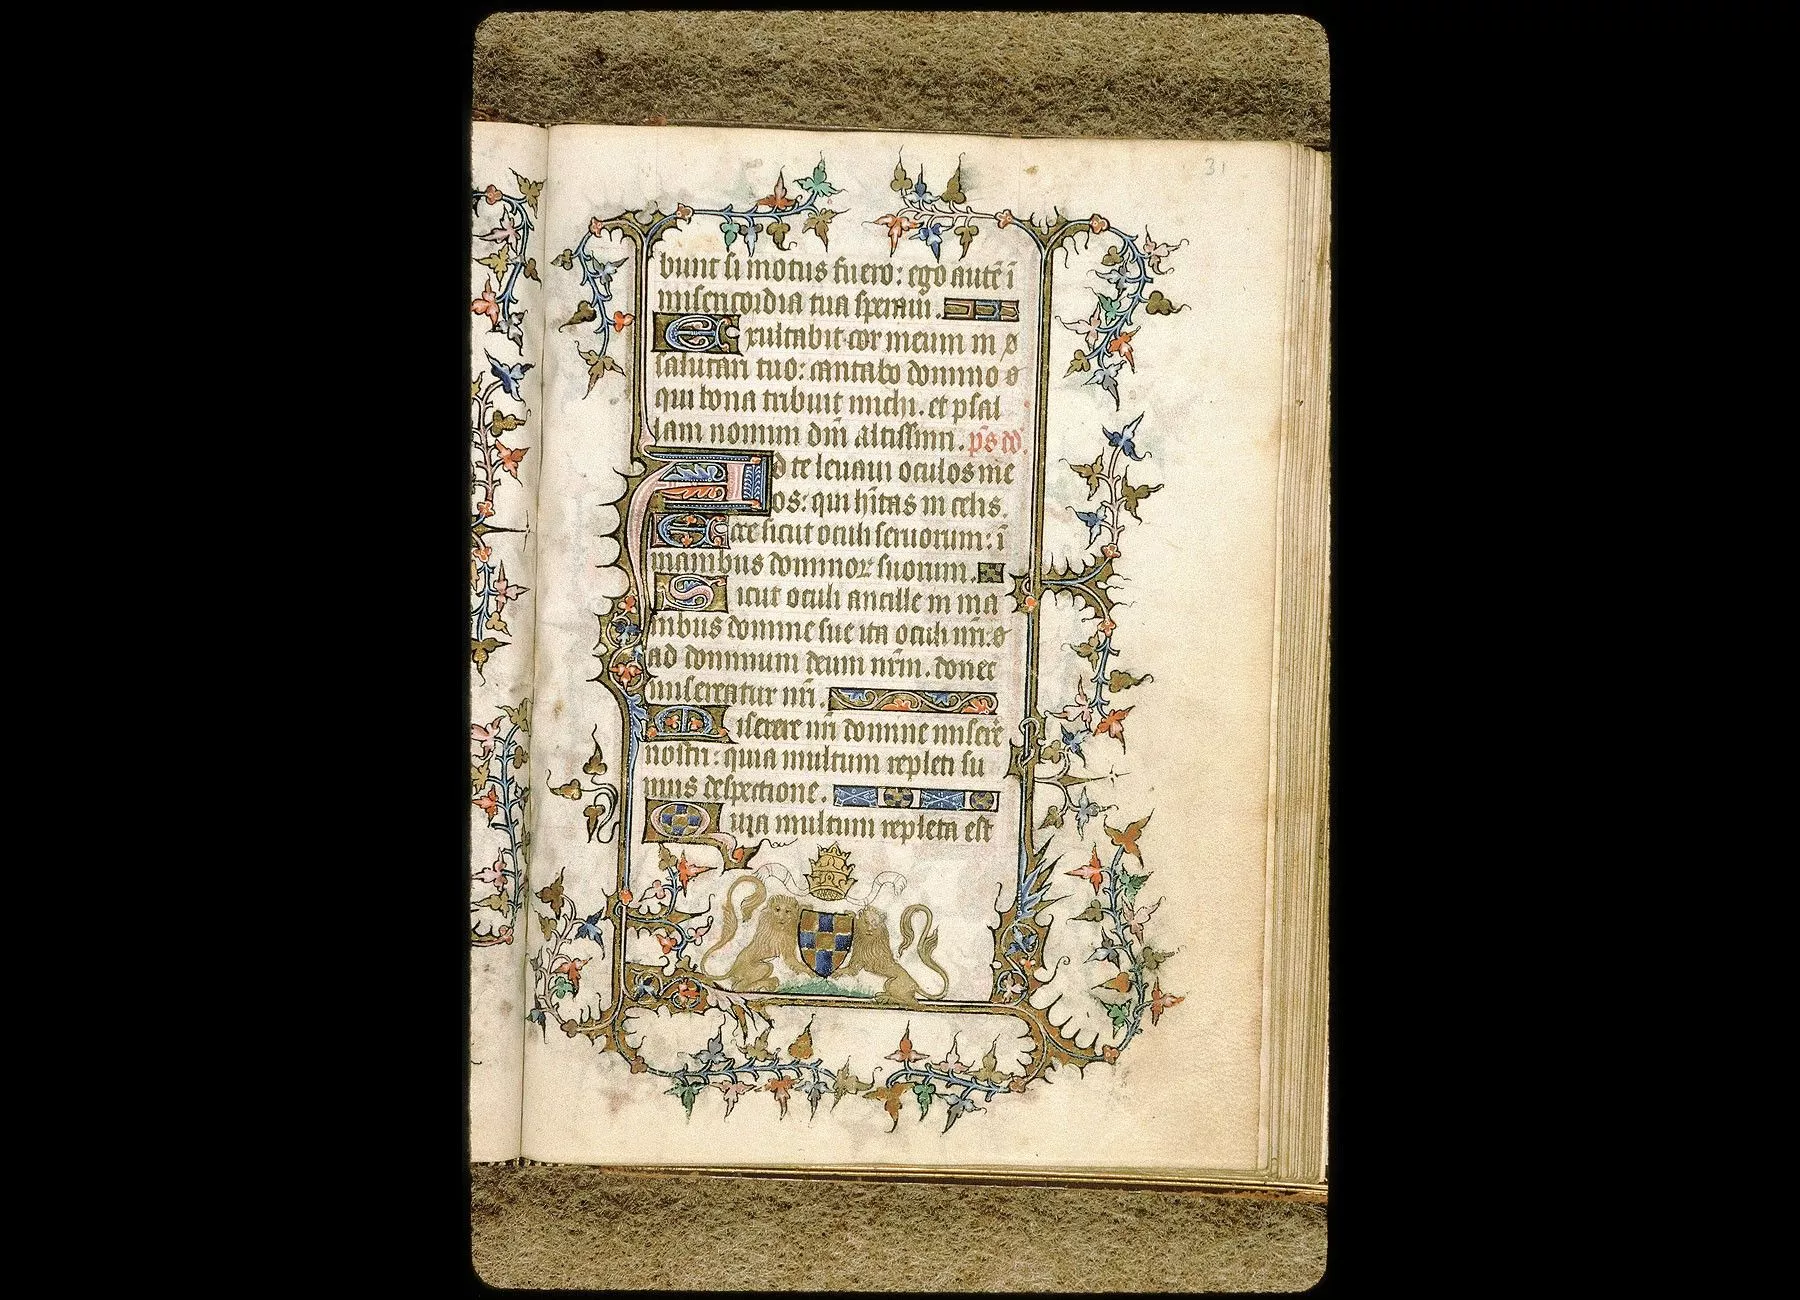 31
bunt si motus fuero: ego autē ī
misericordia tua speraui.
Exultabit cor meum in
salutari tuo: cantabo domino
qui bona tribuit michi. et psal
lam nomini dn̄i altissimi. ps̄ dd̄.
Ad te leuaui oculos me
os: qui hītas in celis.
Ecce sicut oculi seruorum: ī
manibus dominoꝝ suorum.
Sicut oculi ancille in ma
nibus domine sue ita oculi nr̄i:
ad dominum deum nr̄m. donec
misereatur nr̄i.
Miserere nr̄i domine miserē
nostri: quia multum repleti su
mus despectione.
Quia multum repleta est